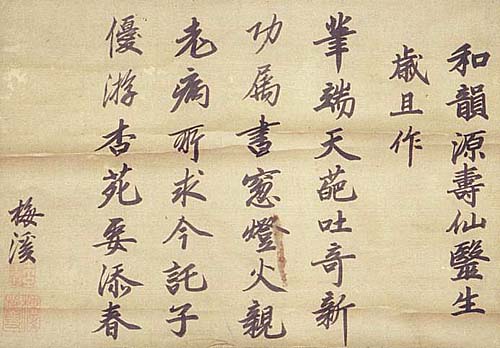 和韻源壽仙醫生
歳且作
筆端天葩吐奇新
功属書窓燈火親
老病所求今託子
優游杏苑要添春
梅溪